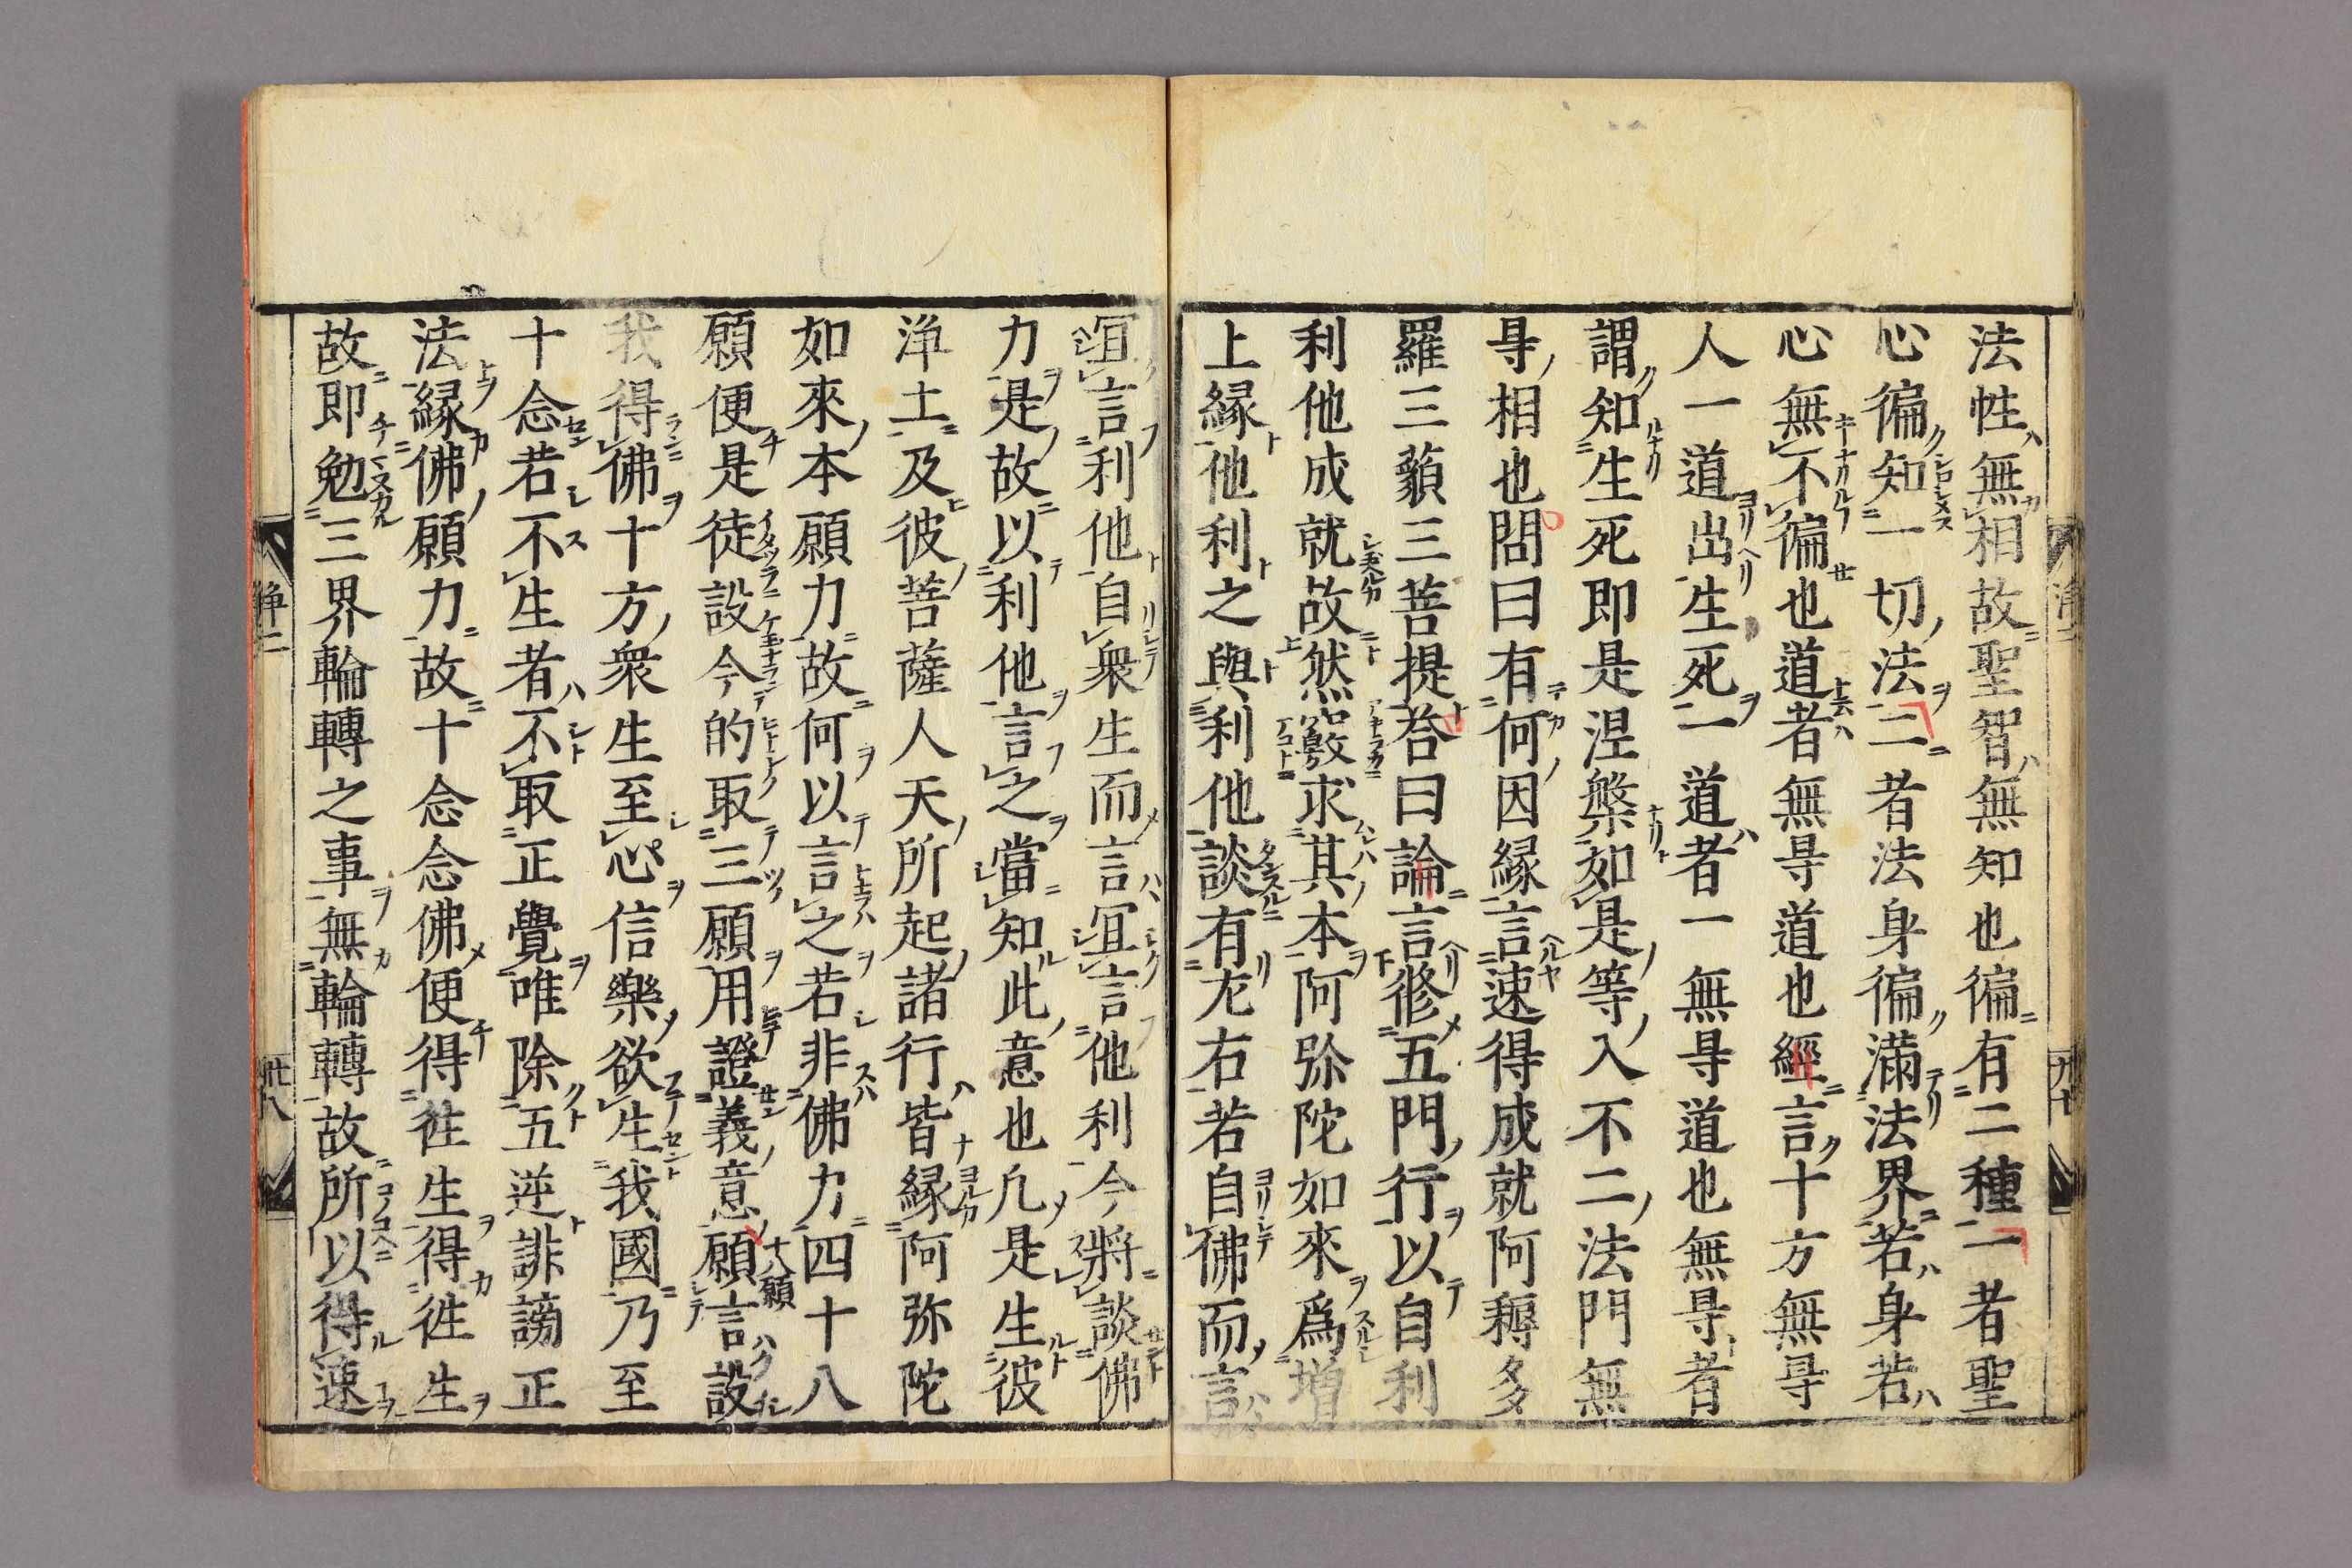 法性無相故聖智無知也徧有二種一者聖
心徧知一切法二者法身徧滿法界若身若
心無不徧也道者無㝵道也經言十方無㝵
人一道出生死一道者一無㝵道也無㝵者
謂知生死即是涅槃如是等入不二法門無
㝵相也問曰有何因緣言速得成就阿耨多
羅三藐三菩提荅曰論言修五門行以自利
利他成就故然覈求其本阿弥陀如來爲増
上縁他利之與利他談有左右若自佛而言
冝言利他自衆生而言冝言他利今將談佛
力是故以利他言之當知此意也凢是生彼
浄土及彼菩薩人天所起諸行皆縁阿弥陀
如來本願力故何以言之若非佛力四十八
願便是徒設今的取三願用證義意願言設
十八願
我得佛十方衆生至心信樂欲生我國乃至
十念若不生者不取正覺唯除五逆誹謗正
法縁佛願力故十念念佛便得徃生得徃生
故即勉三界輪轉之事無輪轉故所以得速